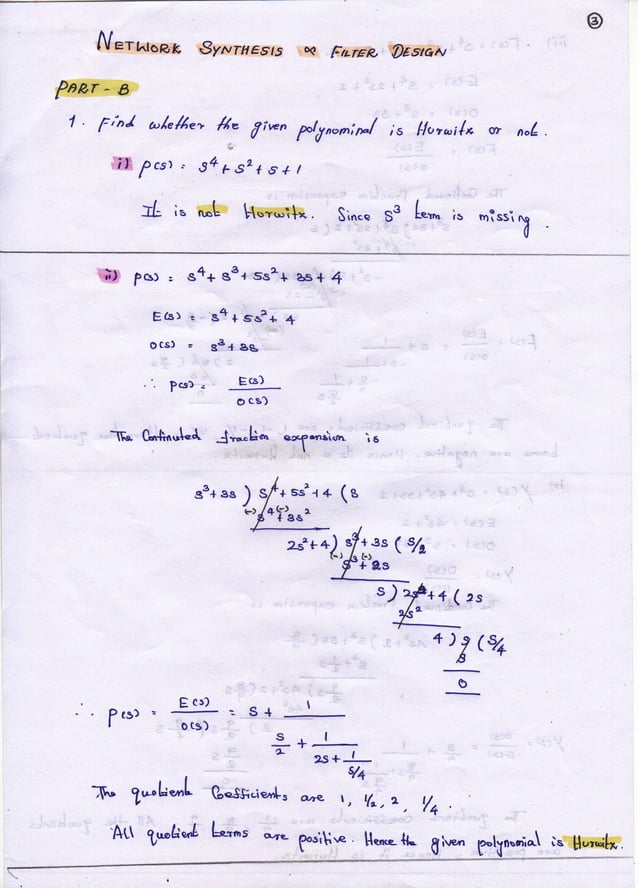 3
NETWORK SYNTHESIS & FILTER DESIGN
PART - B
1. Find whether the given polynominal is Hurwitx or not.
i) P(s) = s⁴ + s² + s + 1
It is not Hurwitx. Since s³ term is missing.
ii) P(s) = s⁴ + s³ + 5s² + 3s + 4
E(s) = s⁴ + 5s² + 4
O(s) = s³ + 3s
∴ P(s) = E(s)
O(s)
The Continuted fraction expansion is
s³+3s ) s⁴ + 5s² + 4 ( s
(-) s⁴ (-) + 3s²
2s²+4 ) s³ + 3s ( s/2
(-) s³ (-) + 2s
s ) 2s² + 4 ( 2s
2s²
4 ) s ( s/4
s
0
∴ P(s) = E(s) = s + 1
O(s) s + 1
2 2s + 1
s/4
The quotient Coefficients are 1, 1/2, 2, 1/4.
All quotient terms are positive. Hence the given polynomial is Hurwitx.